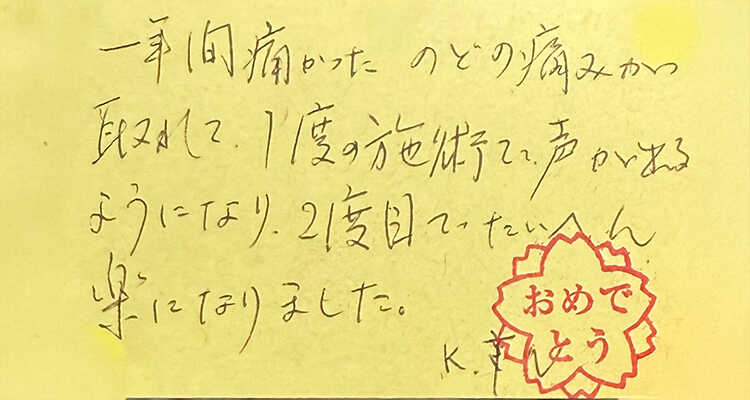 一年間痛かった のどの痛みが
取れて、1度の施術で、声が出る
ようになり、2度目でたいへん
楽になりました。
おめで
とう
K.